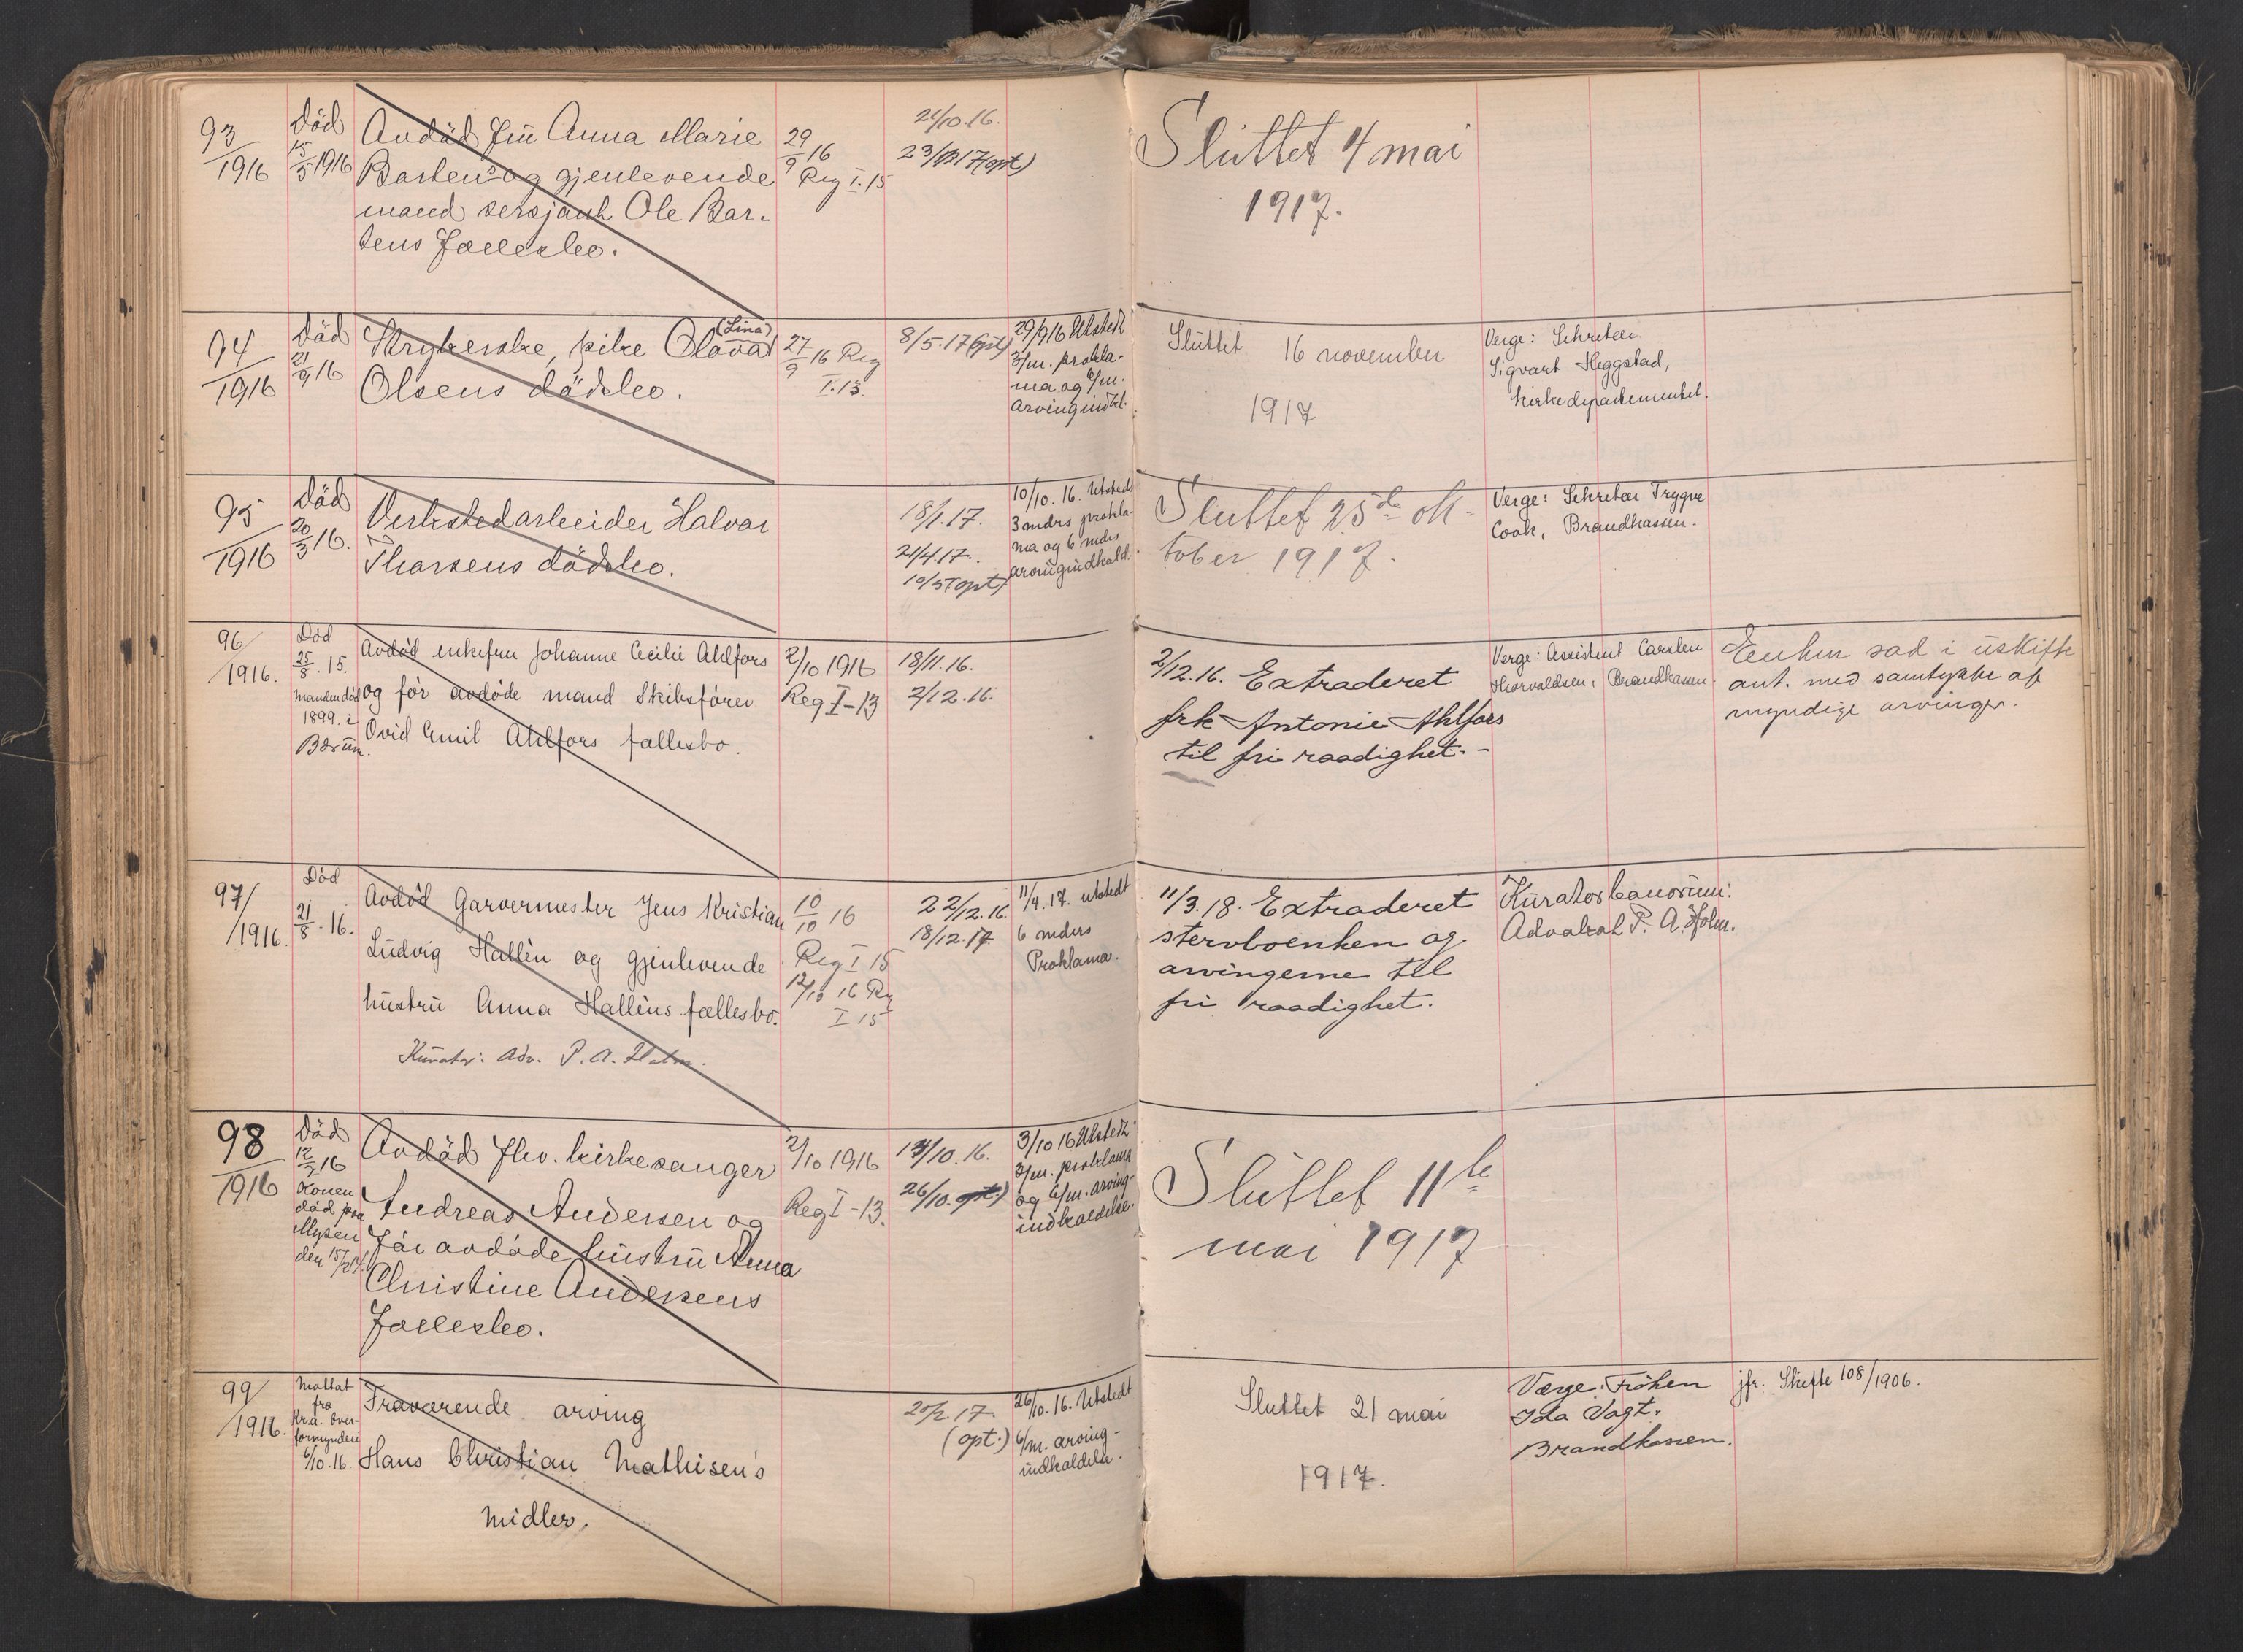 93/1916
Död
15/5 1916
Avdöd fru Anna Marie
Bartens og gjenlevende
mand sersjant Ole Bar-
tens fællesbo.
29/9 16
Reg I. 15
21/10.16.
23/ 17 (opt)
Sluttet 4 mai
1917.
94/1916
Död
21/9 16
Strykerske, pike Olava (Lina)
Olsens dödsbo.
27/9 16 Reg
I. 13.
8/5.17 (opt)
29/9 16 Utstedt
3/m. prokla-
ma og 6/m.
arvingindk.
Sluttet 16 november
1917
Verge: Sekretær
Sigvart Heggstad,
Kirkedepartementet.
95/1916
Död
20/3 16.
Verkstedarbeider Halvar
Tharsens dödsbo.
18/1.17.
21/4.17.
10/5 (opt)
10/10. 16. Utstedt
3 mdrs prokla-
ma og 6 mdrs
arvingindkald.
Sluttet 25de ok-
tober 1917.
Verge: Sekretær Trygve
Cook, Brandkassen.
96/1916.
Död
25/8.15.
Manden död
1899. i
Bærum.
Avdöd enkefru Johanne Cecilie Ahlfors
og för avdöde mand Skibsförer
Ovid Emil Ahlfors fællesbo.
2/10 1916
Reg I-13
18/11.16.
2/12.16.
2/12.16. Extraderet
frk Antonie Ahlfors
til fri raadighet.-
Verge: Assistent Carsten
Thorvaldsen, Brandkassen.
Enken sad i uskifte
ant. med samtykke af
myndige arvinger.
97/1916.
Död
21/8.16.
Avdöd Garvermester Jens Kristian
Ludvig Hallèn og gjenlevende
hustru Anna Hallèns fællesbo.
Kurator: Adv. P. A. Holm.
10/10 16
Reg I 15
12/10 16 Reg
I 15
22/12.16.
18/12.17
11/4.17. utstedt
6 mdrs
Proklama.
11/3.18. Extraderet
stervboenken og
arvingerne til
fri raadighet.
Kurator bonorum:
Advokat P. A. Holm.
98/1916
Död
12/2 16
Konen
död paa
Mysen
den 15/2 14.
Avdöd fhv. kirkesanger
Andreas Andersen og
för avdöde hustru Anna
Christine Andersens
fællesbo.
2/10 1916
Reg I-13.
14/10.16.
26/10. opt.)
3/10 16 Utstedt
3/m. proklama
og 6/m. arving-
indkaldelse.
Sluttet 11te
mai 1917
99/1916.
Mottat
fra
Kr.a. Over-
formynderi
6/10.16.
Fraværende arving
Hans Christian Mathisen's
midler.
20/2.17.
(opt.)
26/10.16. Utstedt
6/m. arving-
indkaldelse.
Sluttet 21 mai
1917.
Værge: Fröken
Ida Vogt.
Brandkassen.
jfr. Skifte 108/1906.